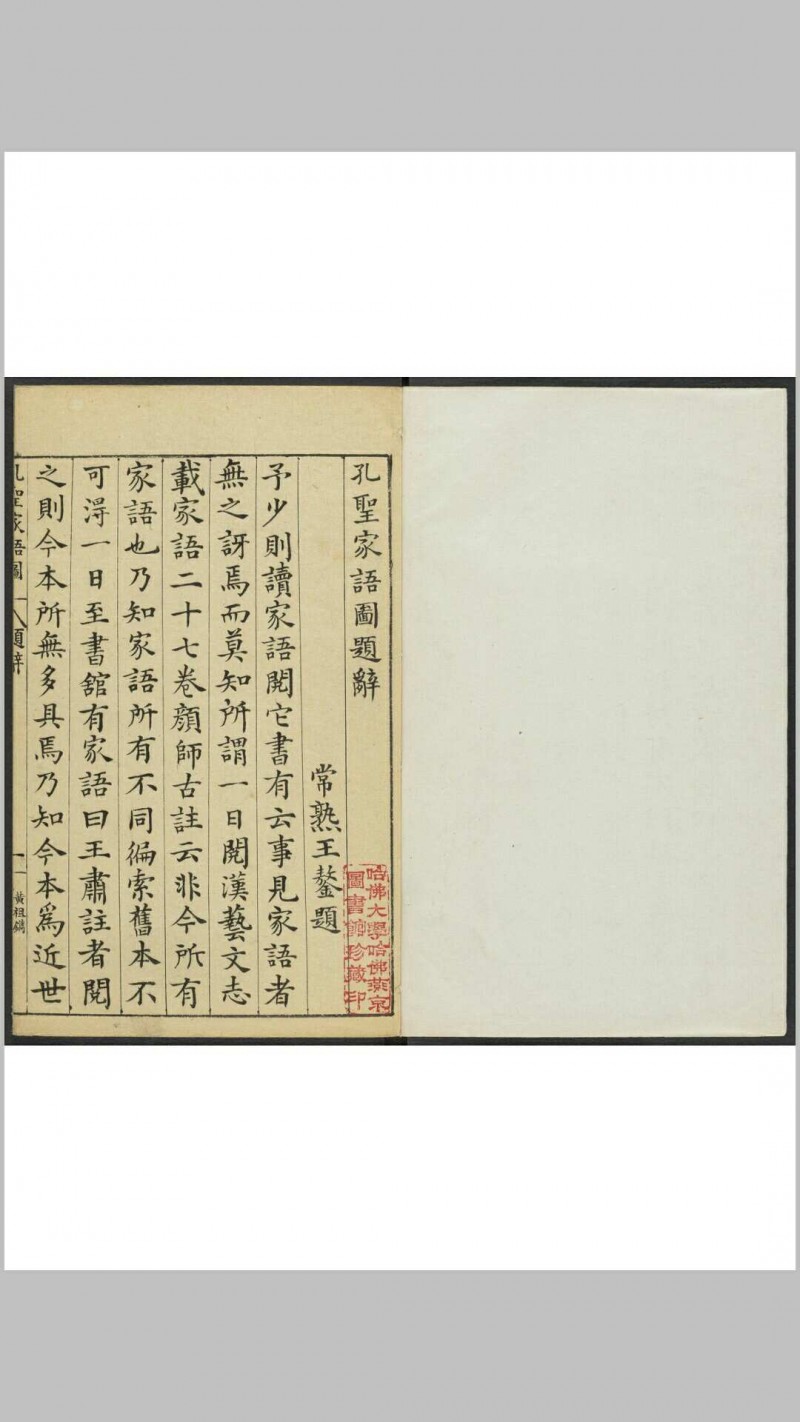 孔聖家語圖題辭
常熟王鏊題
予少則讀家語閱它書有云事見家語者
無之訝焉而莫知所謂一日閱漢藝文志
載家語二十七卷顔師古註云非今所有
家語也乃知家語所有不同徧索舊本不
可淂一日至書舘有家語曰王肅註者閱
之則今本所無多具焉乃知今本爲近世
孔聖家語圖
題辭
一
黃祖鐫
哈佛大學哈佛燕京
圖書館珍藏印